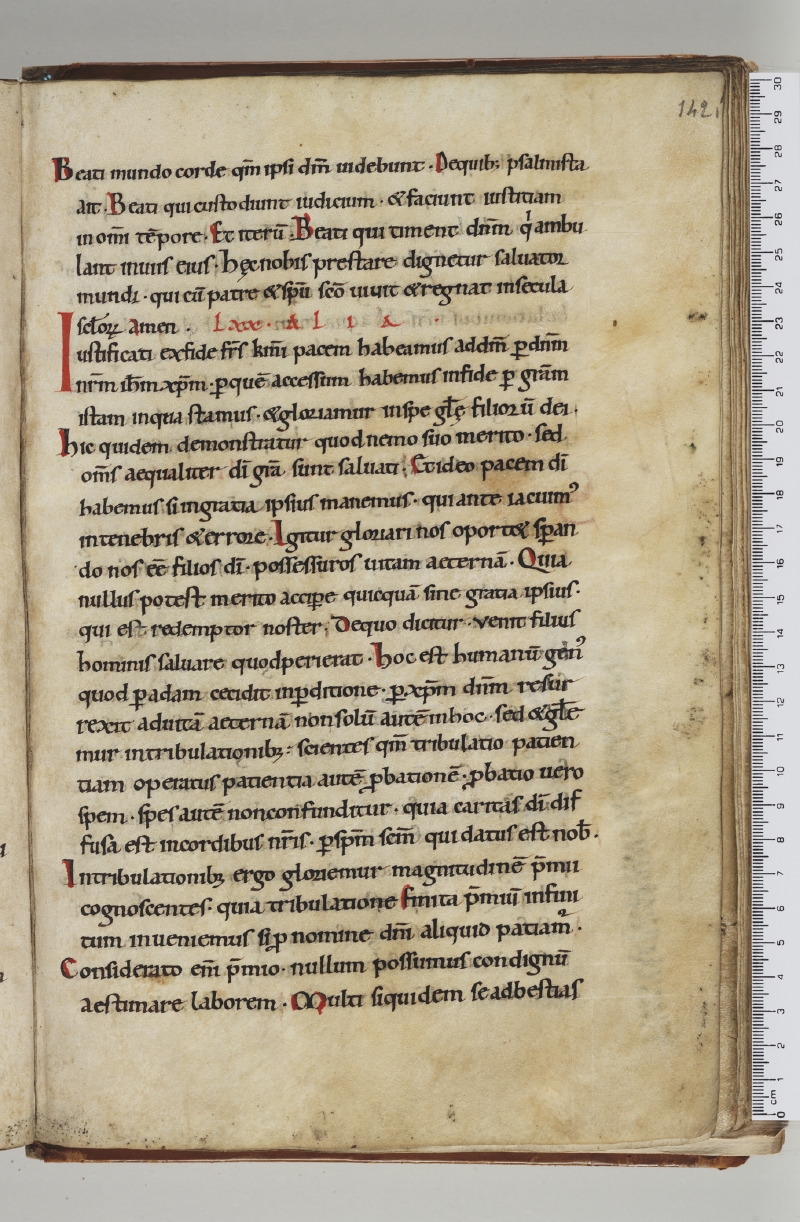 142.
Beati mundo corde qm̄ ipsi dm̄ uidebunt · Dequib; psalmista
ait · Beati qui custodiunt iudicium · &faciunt iustitiam
inom̄i tēpore · Et iterū · Beati qui timent dn̄m q̇ ambu
lant inuiis eius · hęc nobis prestare dignetur saluator
mundi · qui cū patre &sp̄u sc̄o uiuit &regnat insecula
sc̄lorꝝ Amen . Lxxx · A L I A
Iustificati exfide fr̄s km̄i pacem habeamus addm̄ ꝑdn̄m
nr̄m ih̄m xp̄m · ꝑquē accessum habemus infide ꝑ grām
istam inqua stamus · &gloriamur inspe gl̄ę filiorū dei .
hic quidem demonstratur quodnemo suo merito · sed
om̄s aequaliter dī grā sunt saluati . Et ideo pacem dī
habemus si ingratia ipsius manemus · qui ante iacuim᾽
intenebris &errore · Igitur gloriari nos oport& sꝑan
do nos eē filios dī · possessuros uitam aeternā . Quia
nullus potest merito acciꝑe quicquā sine gratia ipsius ·
qui est redemptor noster ; Dequo dicitur · venit filius
hominis saluare quodperierat · hoc est humanū gen᾽
quod ꝑadam cecidit inꝑditione · ꝑxp̄m dn̄m resur
rexit aduitā aeternā nonsolū autē inhoc · sed &gl̄e
mur intribulationib; : scientes qm̄ tribulatio patien
tiam operatus patientia autē ꝓbationē · ꝓbatio uero
spem · spes autē nonconfunditur · quia caritas dī dif
fusa est incordibus nr̄is · ꝑsp̄m sc̄m qui datus est nob̄ .
Intribulationib; ergo gloriemur magnitudinē p̄mii
cognoscentes : quia tribulatione finita p̄miū infini
tum inueniemus si ꝓ nomine dn̄i aliquid patiam̄ .
Considerato em̄ p̄mio · nullum possumus condignū
aestimare laborem · Multi siquidem se adbestias